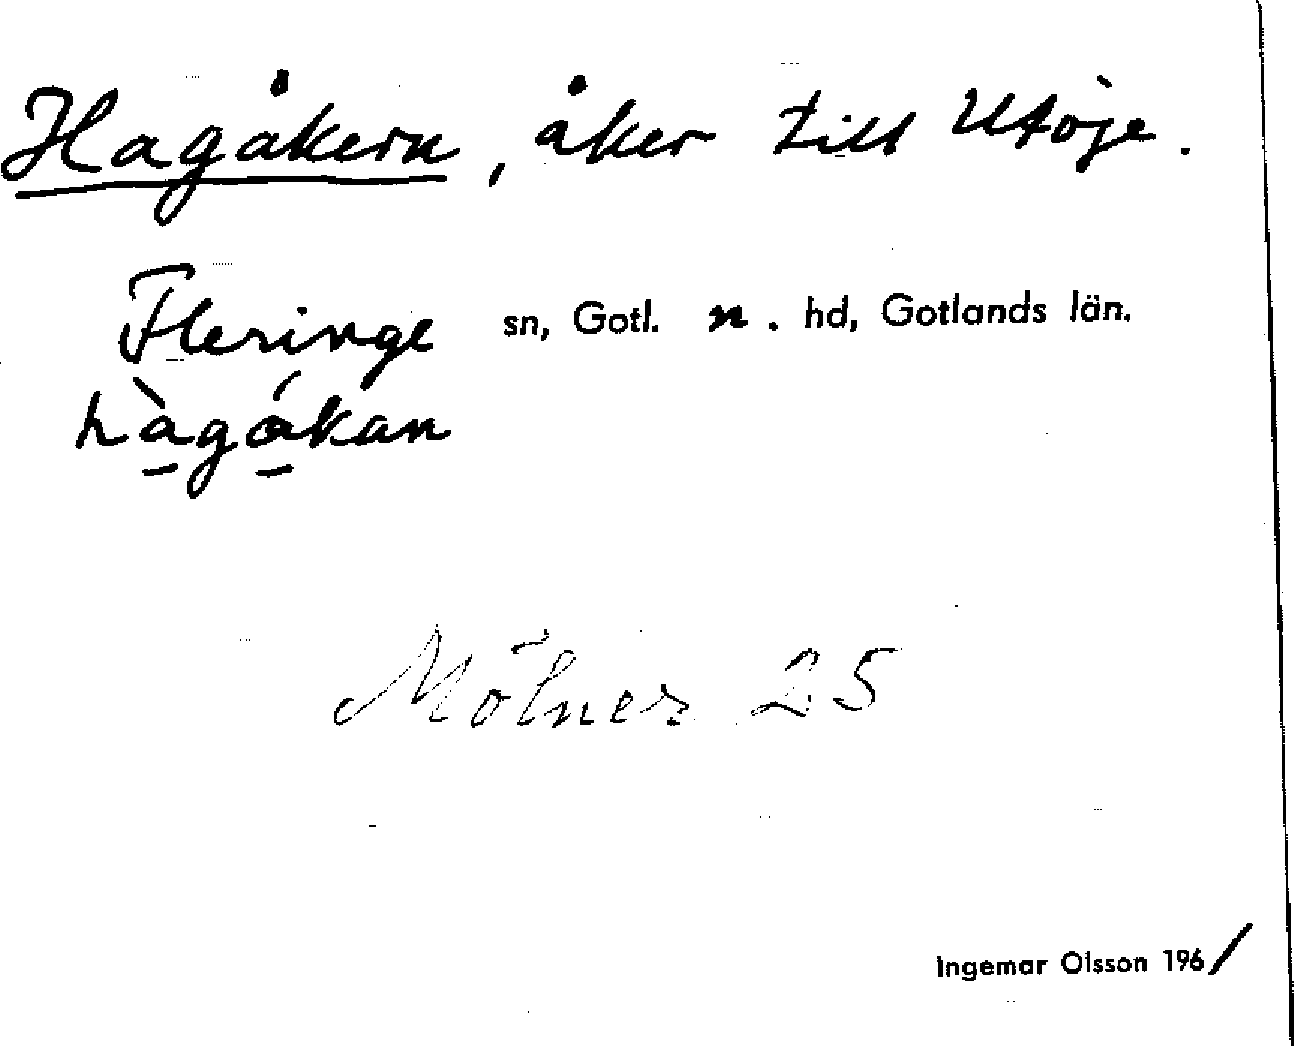 Hagåkern, åker till Utöje.
Fleringe sn, Gotl. n. hd, Gotlands län.
hàgákan
Mölner 25
Ingemar Olsson 1961